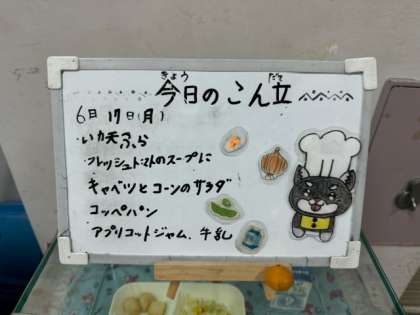 きょう だて
今日のこん立
6日 17日(月)
・いか天ぷら
・フレッシュトマトのスープに
キャベツとコーンのサラダ
コッペパン
アプリコットジャム、牛乳